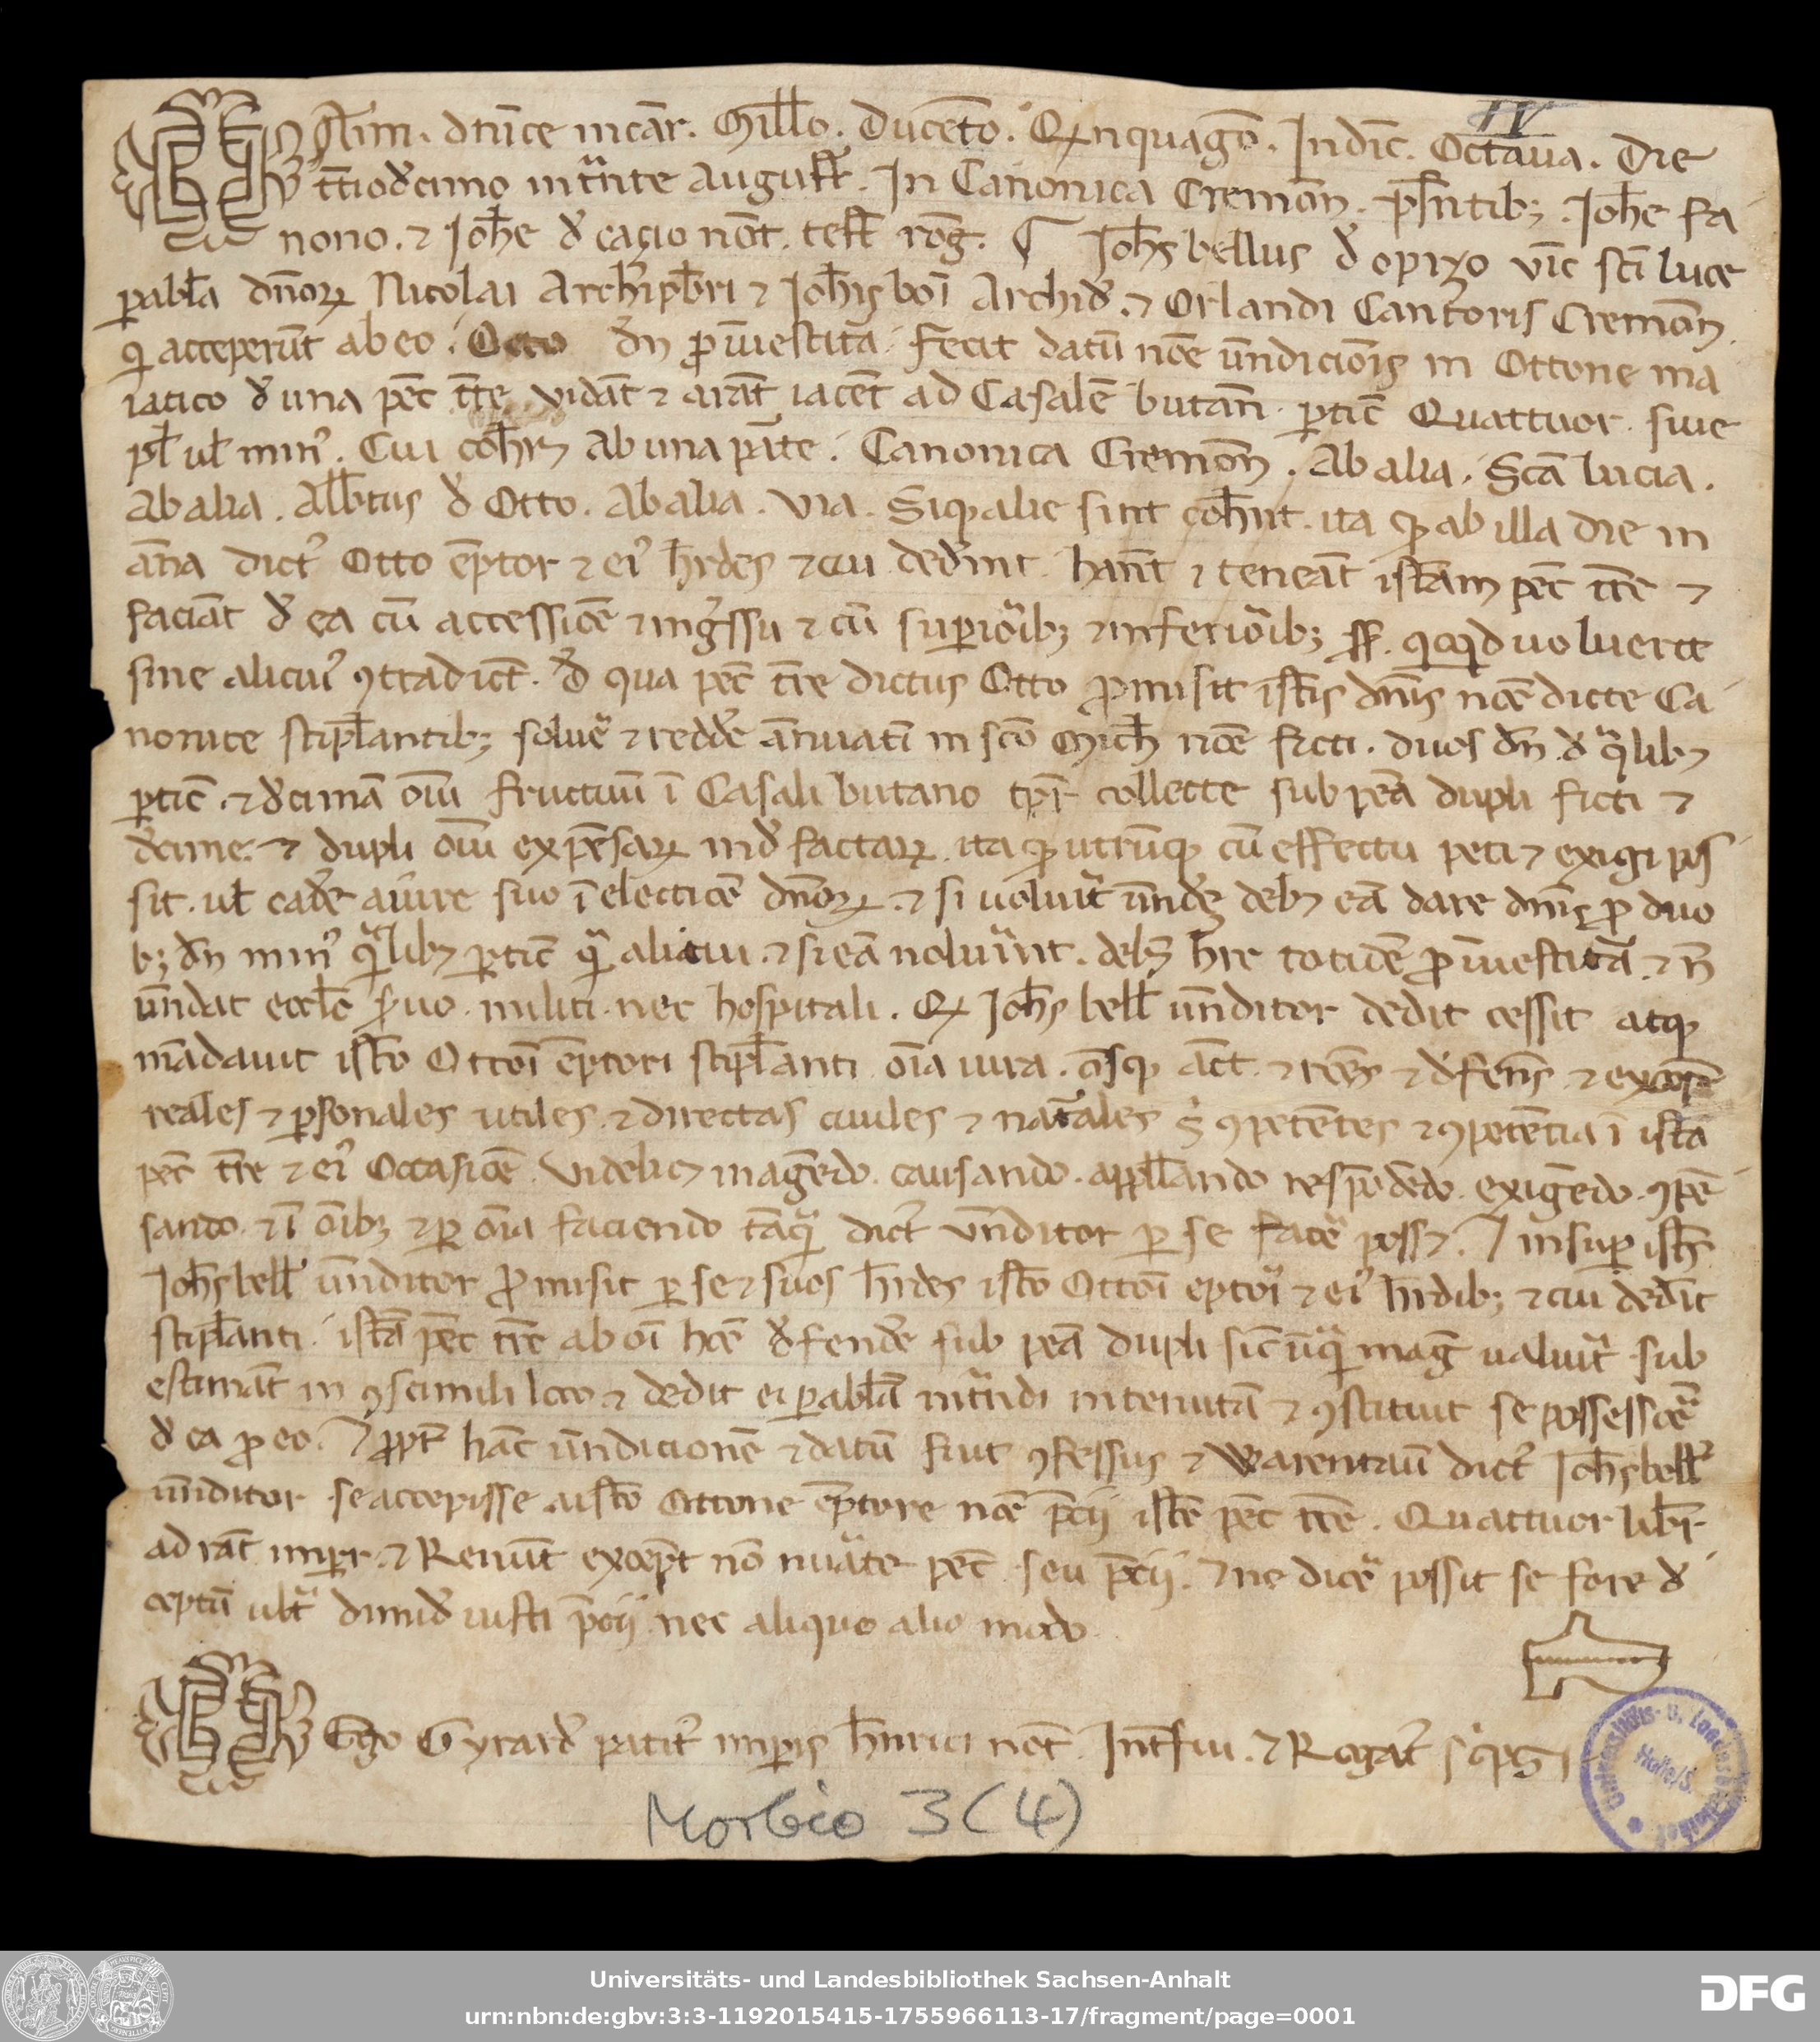 IV
An̄im. dn̄ice incar̄. Mill̄o. Ducen̄to. Qinquag̊o. Indic̄. Octaua. Die
t̄tiodecimo int̄nte august̄. In Canonica Cremon̄. p̄sn̄tib; Joh̄e fa
nono. ⁊ Joh̄e d̄ cacio not̄. test̄ roḡ. Joh̄s bellus d̄ opizo vic̄ sc̄i luce
p abl̄a dn̄oꝝ Nicolai Archip̄bri ⁊ Joh̄is boi Archid̄. ⁊ Orlandi Cantoris Cremon̄.
qi acceperūt ab eo. Octo dn̄ ꝓ īuestita. fecit datū noē ūndicionis in Ottone ma
iatico d̄ una pec̄ tr̄e vidat̄ ⁊ arat̄ iacet̄ ad Casale butan̄. ꝑtic̄ Quattuor. siue
pl̄ ul̄ min̄. Cui coh̄ꝫ Ab una pāte. Canonica Cremon̄. Ab alia. Scā lucia.
Ab alia. Alb̄tus d̄ Otto. Ab alia. Via. Siqꝫ alie sint coh̄nt. ita qꝫ ab illa die in
ān̄a dict̄ Otto ēptor ⁊ ei' h̄rdes ⁊ cui ded̄int. han̄t ⁊ teneān̄t istam pec̄ tr̄e ⁊
faciāt d̄ ea cū accessioē ⁊ ingr̄ssu ⁊ cū suꝑiorib; ⁊ inferiorib; qicqid uoluerit
sine alicui' ꝯtradict̄. D̄ qua pec̄ tr̄e dictus Otto ꝓmisit istis dn̄is noē dicte Ca
nonice stipl̄antib; soluē ⁊ redd̄e an̄uatī in scō Mich̄ noē ficti. duos dn̄ d̄ qalibꝫ
ꝑtic̄ ⁊ d̄cimā oīu fructuū ī Casali butano tp̄r collecte sub pēa dupli ficti ⁊
d̄cime. ⁊ dupli oīu expēsaꝝ ind̄ factaꝝ. ita qꝫ utrūqꝫ cū effectu peti ⁊ exigi pos
sit. ul̄ cad̄e a iure suo ī electioē dn̄oꝝ. ⁊ si uoluit ūnd̄e debꝫ eā dare dn̄is ꝓ duo
b; dn̄ min' qalibꝫ ꝑtic̄ qā alicui. ⁊ si eā noluīnt. debꝫ h̄re totidē ꝓ īuestita. ⁊ n̄
ūndat eccl̄e s̄uo. militi. nec hospitali. Q Joh̄s bell̄ ūnditor dedit cessit atqꝫ
mādauit isto Ottoī ēptori stipl̄anti oīa iura. oīsqꝫ act̄. ⁊ rōes ⁊ d̄fens̄. ⁊ excep̄
reales ⁊ ꝑsonales utiles ⁊ directas ciuiles ⁊ nat̄ales s' ꝯpetētes ⁊ ꝯpetētia ī istā
pec̄ tr̄e ⁊ ei' Occasioē. Videlicꝫ in agēdo. causando. appll̄ando respōdēdo. exigēdo. ꝯpē
sando. ⁊ ī oīb; ⁊ ꝑ oīa faciendo tāqā dict̄ vnditor ꝑ se face possꝫ. ⁊ insuꝑ isto
Joh̄s bell̄ ūnditor ꝓmisit ꝑ se ⁊ suos h̄rdes isto Ottoī eptoi ⁊ ei' h̄rdib; ⁊ cui ded̄it
stipl̄anti. istā pec̄ tr̄e ab oī hoē d̄fend̄e sub pēa dupli sic̄ ūqā maḡ ualuit̄. sub
estimat̄ in ꝯsimili loco. ⁊ dedit ei ꝑ ablā int̄ndi in tenutā ⁊ ꝯstituit se possessoē
d̄ ea ꝓ eo. ⁊ ꝓpt̄ hāc ūndicionē ⁊ datū fuit ꝯfessus ⁊ Warentauit dict̄ Joh̄s bell̄
ūnditor se accepisse a isto Ottone ēptore noē p̄cij iste pec̄ tr̄e. Quattuor libr̄
ad rat̄ imꝑr. ⁊ Renūt except̄ no nūate pec̄ seu p̄cij. ⁊ ne dicē possit se fore d̄
ceptū ult̄ dimid̄ iusti p̄cij nec aliquo alio modo.
Ego Gyrard' patit̄ imꝑis h̄nrici not̄. Int̄fui. ⁊ Rogat̄ s'cps̄i
Morbio 3 (4)
Universitäts- u. Landesbibliothek
Halle/S.
Universitäts- und Landesbibliothek Sachsen-Anhalt
urn:nbn:de:gbv:3:3-1192015415-1755966113-17/fragment/page=0001
DFG